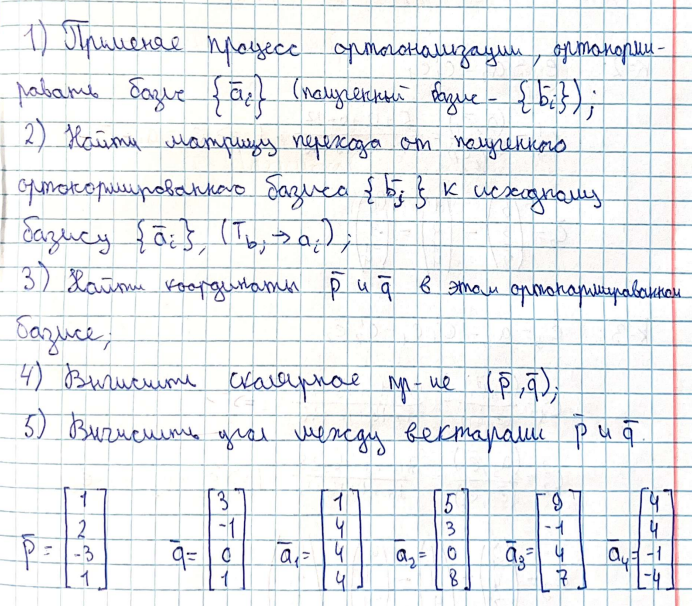 1) Применяя процесс ортогонализации, ортонорми-
ровать базис {a̅ᵢ} (полученный базис - {b̅ᵢ});
2) Найти матрицу перехода от полученного
ортонормированного базиса {b̅ⱼ} к исходному
базису {a̅ᵢ}, (T bⱼ → aᵢ);
3) Найти координаты p̅ и q̅ в этом ортонормированном
базисе;
4) Вычислить скалярное пр-ие (p̅, q̅);
5) Вычислить угол между векторами p̅ и q̅.
p̅ = [1 2 -3 1] q̅ = [3 -1 0 1] a̅₁ = [1 4 4 4] a̅₂ = [5 3 0 8] a̅₃ = [9 -1 4 7] a̅₄ = [4 4 -1 -4]